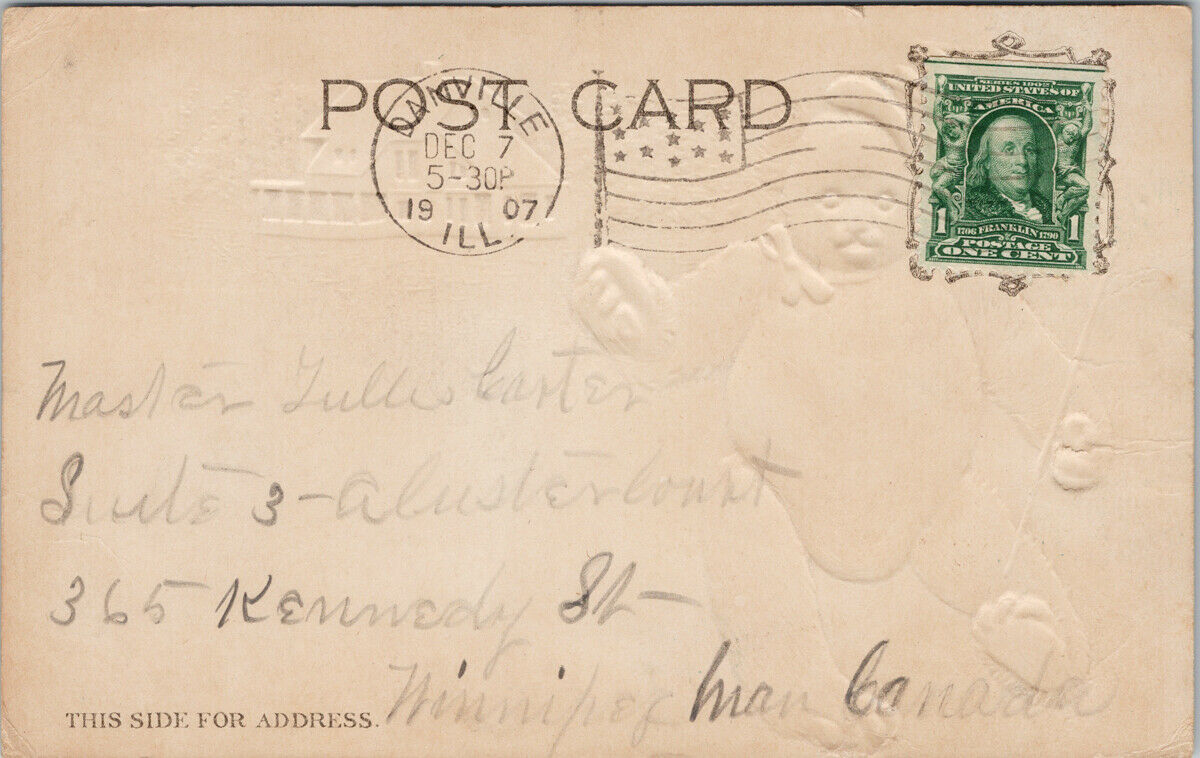 POST CARD
DANVILLE
DEC 7
5-30P
19 07
ILL.
SERIES 1902
UNITED STATES OF
AMERICA
1 1706 FRANKLIN 1790 1
POSTAGE
ONE CENT
Master Carter
Suite 3 - Court
365 Kennedy St -
Winnipeg Man Canada
THIS SIDE FOR ADDRESS.